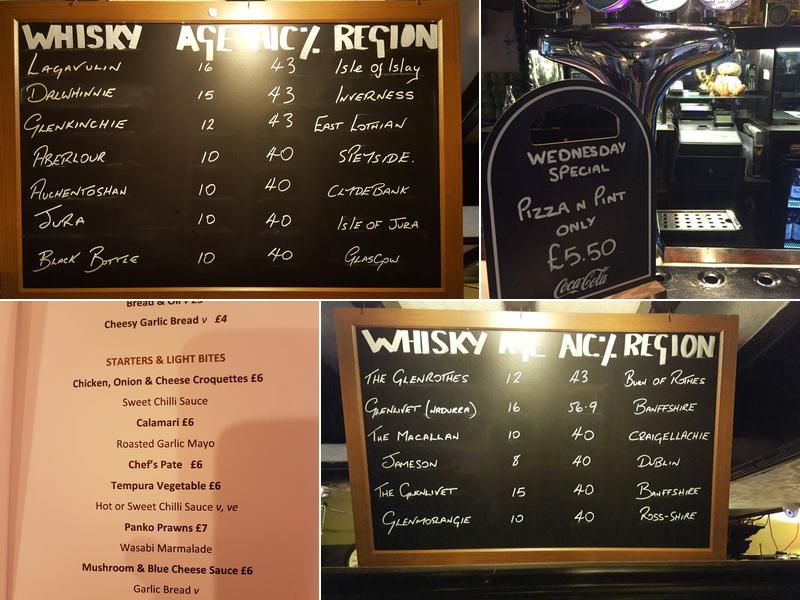 WHISKY AGE ALC% REGION
LAGAVULIN 16 43 ISLE OF ISLAY
DALWHINNIE 15 43 INVERNESS
GLENKINCHIE 12 43 EAST LOTHIAN
ABERLOUR 10 40 SPEYSIDE.
AUCHENTOSHAN 10 40 CLYDEBANK
JURA 10 40 ISLE OF JURA
BLACK BOTTLE 10 40 GLASGOW
WEDNESDAY
SPECIAL
PIZZA N PINT
ONLY
£5.50
Coca-Cola
Bread & Oil v £3
Cheesy Garlic Bread v £4
STARTERS & LIGHT BITES
Chicken, Onion & Cheese Croquettes £6
Sweet Chilli Sauce
Calamari £6
Roasted Garlic Mayo
Chef's Pate £6
Tempura Vegetable £6
Hot or Sweet Chilli Sauce v, ve
Panko Prawns £7
Wasabi Marmalade
Mushroom & Blue Cheese Sauce £6
Garlic Bread v
WHISKY AGE ALC% REGION
THE GLENROTHES 12 43 BURN OF ROTHES
GLENLIVET (NADURRA) 16 56.9 BANFFSHIRE
THE MACALLAN 10 40 CRAIGELLACHIE
JAMESON 8 40 DUBLIN
THE GLENLIVET 15 40 BANFFSHIRE
GLENMORANGIE 10 40 ROSS-SHIRE